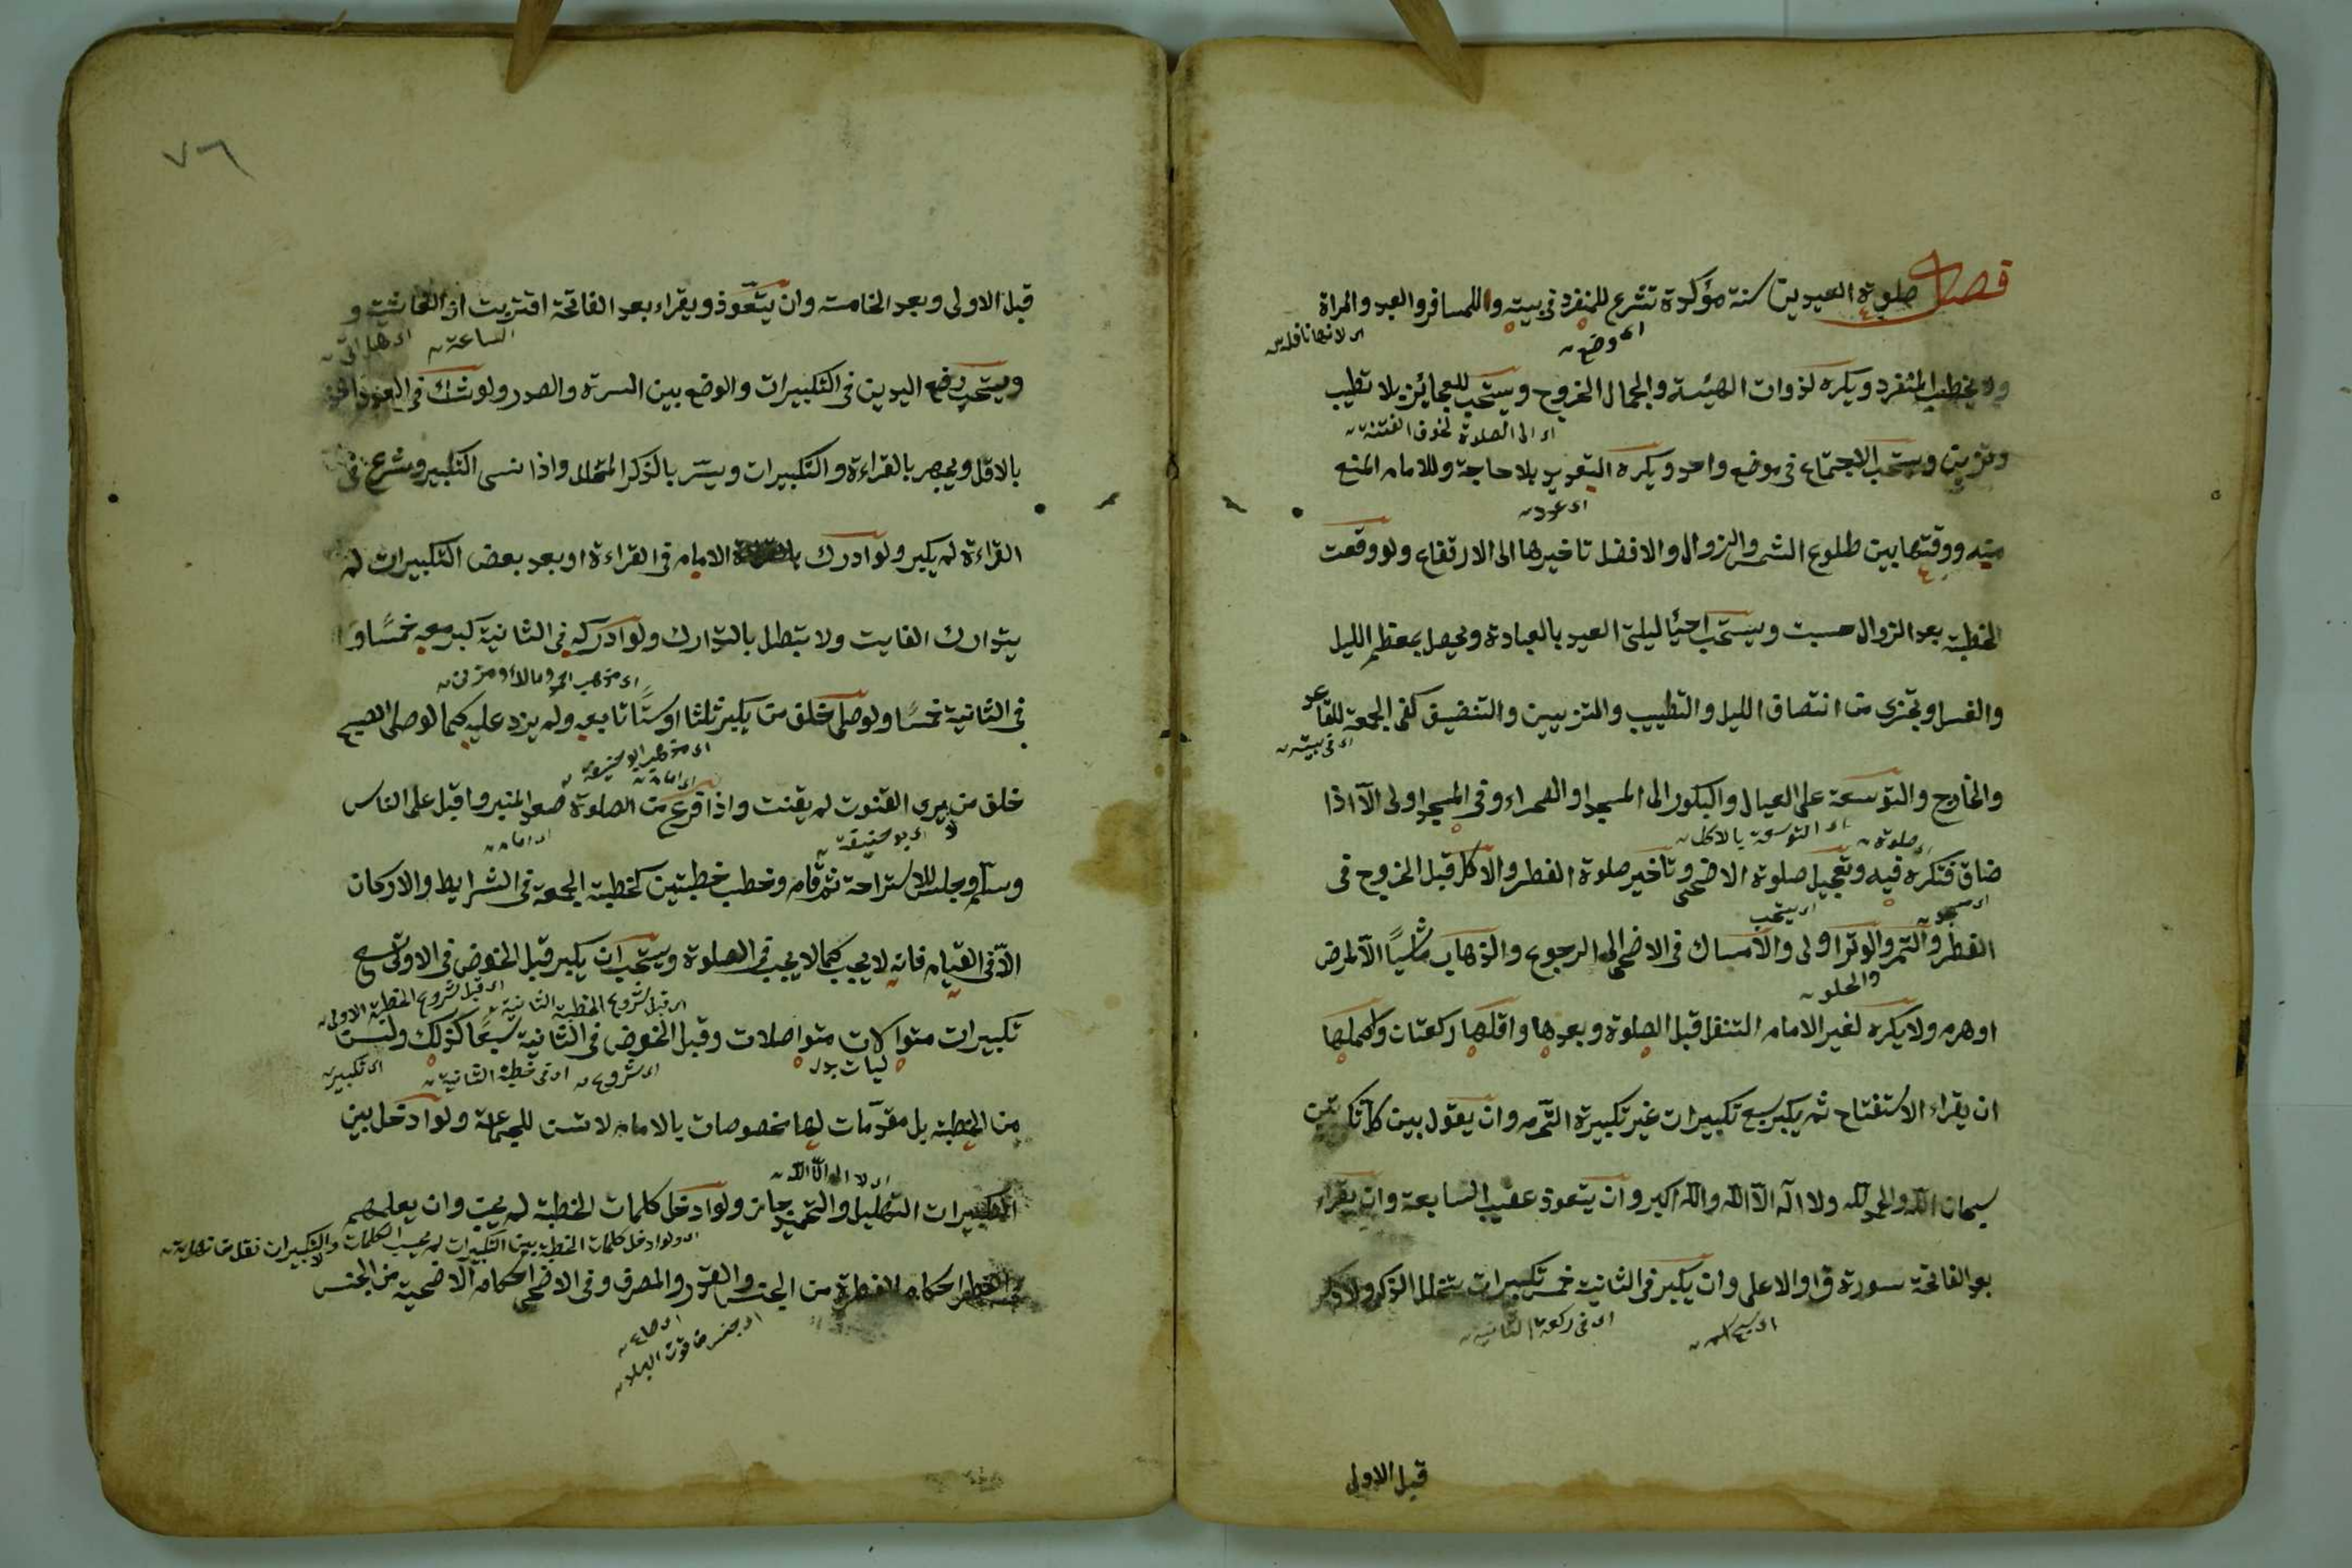 فصل صلوة العيدين سنة مؤكدة تشرع للمنفرد في بيته وللمسافر والعبد والمراة
اى وضع
اى لانها نافلة
ولا يخطب المنفرد ويكره لذوات الهيئة والجمال الخروج ويستحب للعجائز بلا تطيب
اى الى الصلاة لخوف الفتنة
وتزيين ويستحب الاجتماع في موضع واحد ويكره التعديد بلا حاجة وللامام المنع
منه ووقتها بين طلوع الشمس والزوال والافضل تاخيرها الى الارتفاع ولو وقعت
الخطبة بعد الزوال حسبت ويستحب احيا ليلتى العيد بالعبادة ويحصل بمعظم الليل
والغسل ويجزى من انتصاف الليل والتطييب والتزيين والتنضيف كفى الجمعة للقاعد
اى في بيته
والخارج والتوسعة على العيال والبكور الى المسجد او الصحراء وفي المسجد اولى الا اذا
اى التوسعة بالاكل
اى صلوة
ضاق فتكره فيه وتعجيل صلوة الاضحى وتاخير صلوة الفطر والاكل قبل الخروج في
اى يستحب
الفطر والتمر والوتر اولى والامساك في الاضحى الى الرجوع والذهاب ماشيًا الا لمرض
والحلو
او هرم ولا يكره لغير الامام التنفل قبل الصلوة وبعدها واقلها ركعتان واكملها
ان يقراء الاستفتاح ثم يكبر سبع تكبيرات غير تكبيرة التحرم وان يقول بين كل تكبيرتين
سبحان الله والحمد لله ولا اله الا الله والله اكبر وان يتعوذ عقيب السابعة وان يقراء
بعد الفاتحة سورة ق او الاعلى وان يكبر في الثانية خمس تكبيرات يتخلل الذكر ولا ذكر
اى في ركعة الثانية
قبل الاولى
٧٦
قبل الاولى وبعد الخامسة وان يتعوذ ويقراء بعد الفاتحة اقتربت او الغاشية و
الساعة
ويستحب رفع اليدين في التكبيرات والوضع بين السرة والصدر ولو شك في العدد اخذ
بالاقل ويجهر بالقراءة والتكبيرات ويسر بالذكر المتخلل واذا نسى التكبير وشرع في
القراءة لم يكبر ولو ادرك الامام في القراءة او بعد بعض التكبيرات لم
يتدارك الفايت ولا تبطل بالتدارك ولو ادركه في الثانية كبر معه خمسًا و
في الثانية خمسًا ولو صلى خلف من يكبر ثلثا او ستًا تابعه ولم يزد عليه كما لو صلى الصبح
اى مذهب ابو حنيفة
اى امام
خلف من يرى القنوت لم يقنت واذا فرغ من الصلوة صعد المنبر واقبل على الناس
اى ابو حنيفة
اى امام
وسلم وجلس للاستراحة ثم قام وخطب خطبتين كخطبة الجمعة في الشرايط والاركان
الا في القيام فانه لا يجب كما لا يجب في الصلوة ويستحب ان يكبر قبل الخوض في الاولى تسع
اى قبل شروع الخطبة الثانية
اى قبل شروع الخطبة الاولى
تكبيرات متواليات متواصلات وقبل الخوض في الثانية سبعًا كذلك وليست
اى شروع
اى في خطبة الثانية
اى تكبير
من الخطبة بل مقدمات لها مخصوصات بالامام لا تسن للجماعة ولو ادخل بين
اى لا اله الا الله
التكبيرات التهليل والتحميد جاز ولو ادخل كلمات الخطبة لم يجب وان يعلمهم
اى ولو ادخل كلمات الخطبة بين التكبيرات لم يحسب الكلمات والتكبيرات
في الفطر احكام الفطرة من الجنس والقدر والمصرف وفي الاضحى احكام الاضحية من الجنس
اى صاع
اى جنس من قوت البلد